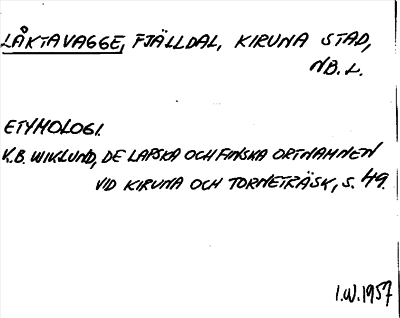 LÅKTAVAGGE, FJÄLLDAL, KIRUNA STAD,
NB.L.
ETYMOLOGI.
K.B. WIKLUND, DE LAPSKA OCH FINSKA ORTNAMNEN
VID KIRUNA OCH TORNETRÄSK, S. 49.
I.W. 1957